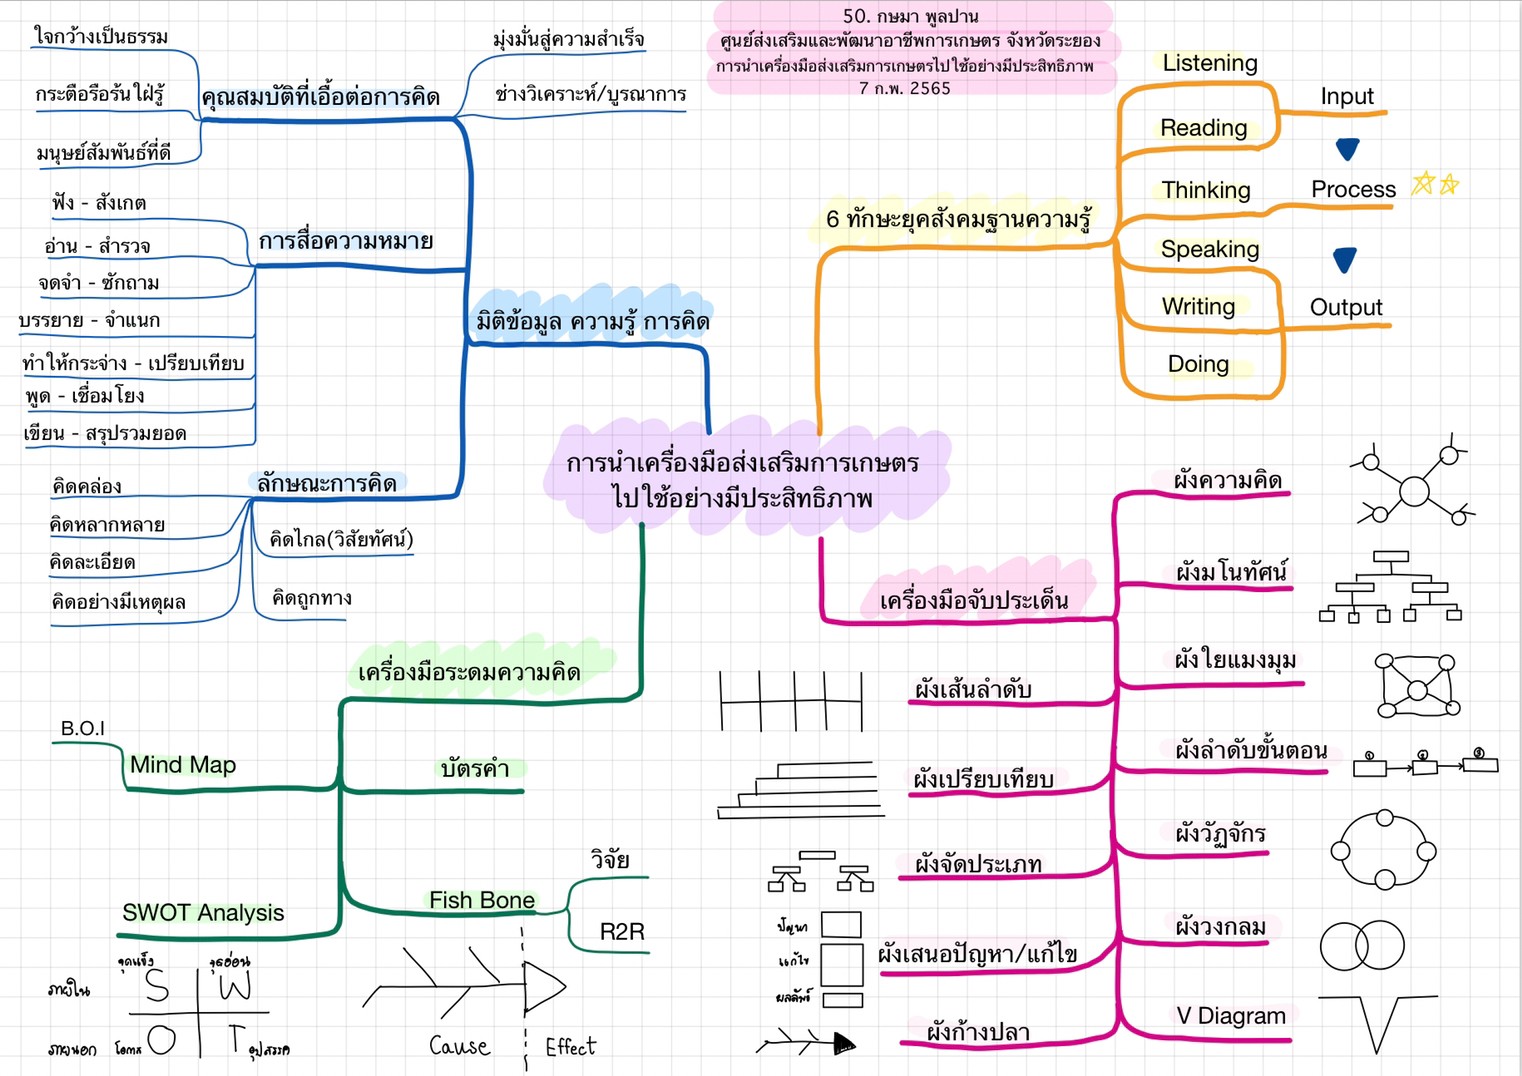 50. กษมา พูลปาน
ศูนย์ส่งเสริมและพัฒนาอาชีพการเกษตร จังหวัดระยอง
การนำเครื่องมือส่งเสริมการเกษตรไปใช้อย่างมีประสิทธิภาพ
7 ก.พ. 2565
การนำเครื่องมือส่งเสริมการเกษตร
ไปใช้อย่างมีประสิทธิภาพ
มิติข้อมูล ความรู้ การคิด
คุณสมบัติที่เอื้อต่อการคิด
ใจกว้างเป็นธรรม
กระตือรือร้นใฝ่รู้
มนุษย์สัมพันธ์ที่ดี
มุ่งมั่นสู่ความสำเร็จ
ช่างวิเคราะห์/บูรณาการ
การสื่อความหมาย
ฟัง - สังเกต
อ่าน - สำรวจ
จดจำ - ซักถาม
บรรยาย - จำแนก
ทำให้กระจ่าง - เปรียบเทียบ
พูด - เชื่อมโยง
เขียน - สรุปรวมยอด
ลักษณะการคิด
คิดคล่อง
คิดหลากหลาย
คิดละเอียด
คิดอย่างมีเหตุผล
คิดไกล(วิสัยทัศน์)
คิดถูกทาง
6 ทักษะยุคสังคมฐานความรู้
Listening
Reading
Input
Thinking
Process
Speaking
Writing
Output
Doing
เครื่องมือจับประเด็น
ผังความคิด
ผังมโนทัศน์
ผังใยแมงมุม
ผังลำดับขั้นตอน
1 2 3
ผังวัฏจักร
ผังวงกลม
V Diagram
ผังเส้นลำดับ
ผังเปรียบเทียบ
ผังจัดประเภท
ผังเสนอปัญหา/แก้ไข
ปัญหา
แก้ไข
ผลลัพธ์
ผังก้างปลา
เครื่องมือระดมความคิด
B.O.I
Mind Map
บัตรคำ
Fish Bone
วิจัย
R2R
Cause
Effect
SWOT Analysis
จุดแข็ง
จุดอ่อน
ภายใน
S
W
ภายนอก
โอกาส
O
T
อุปสรรค